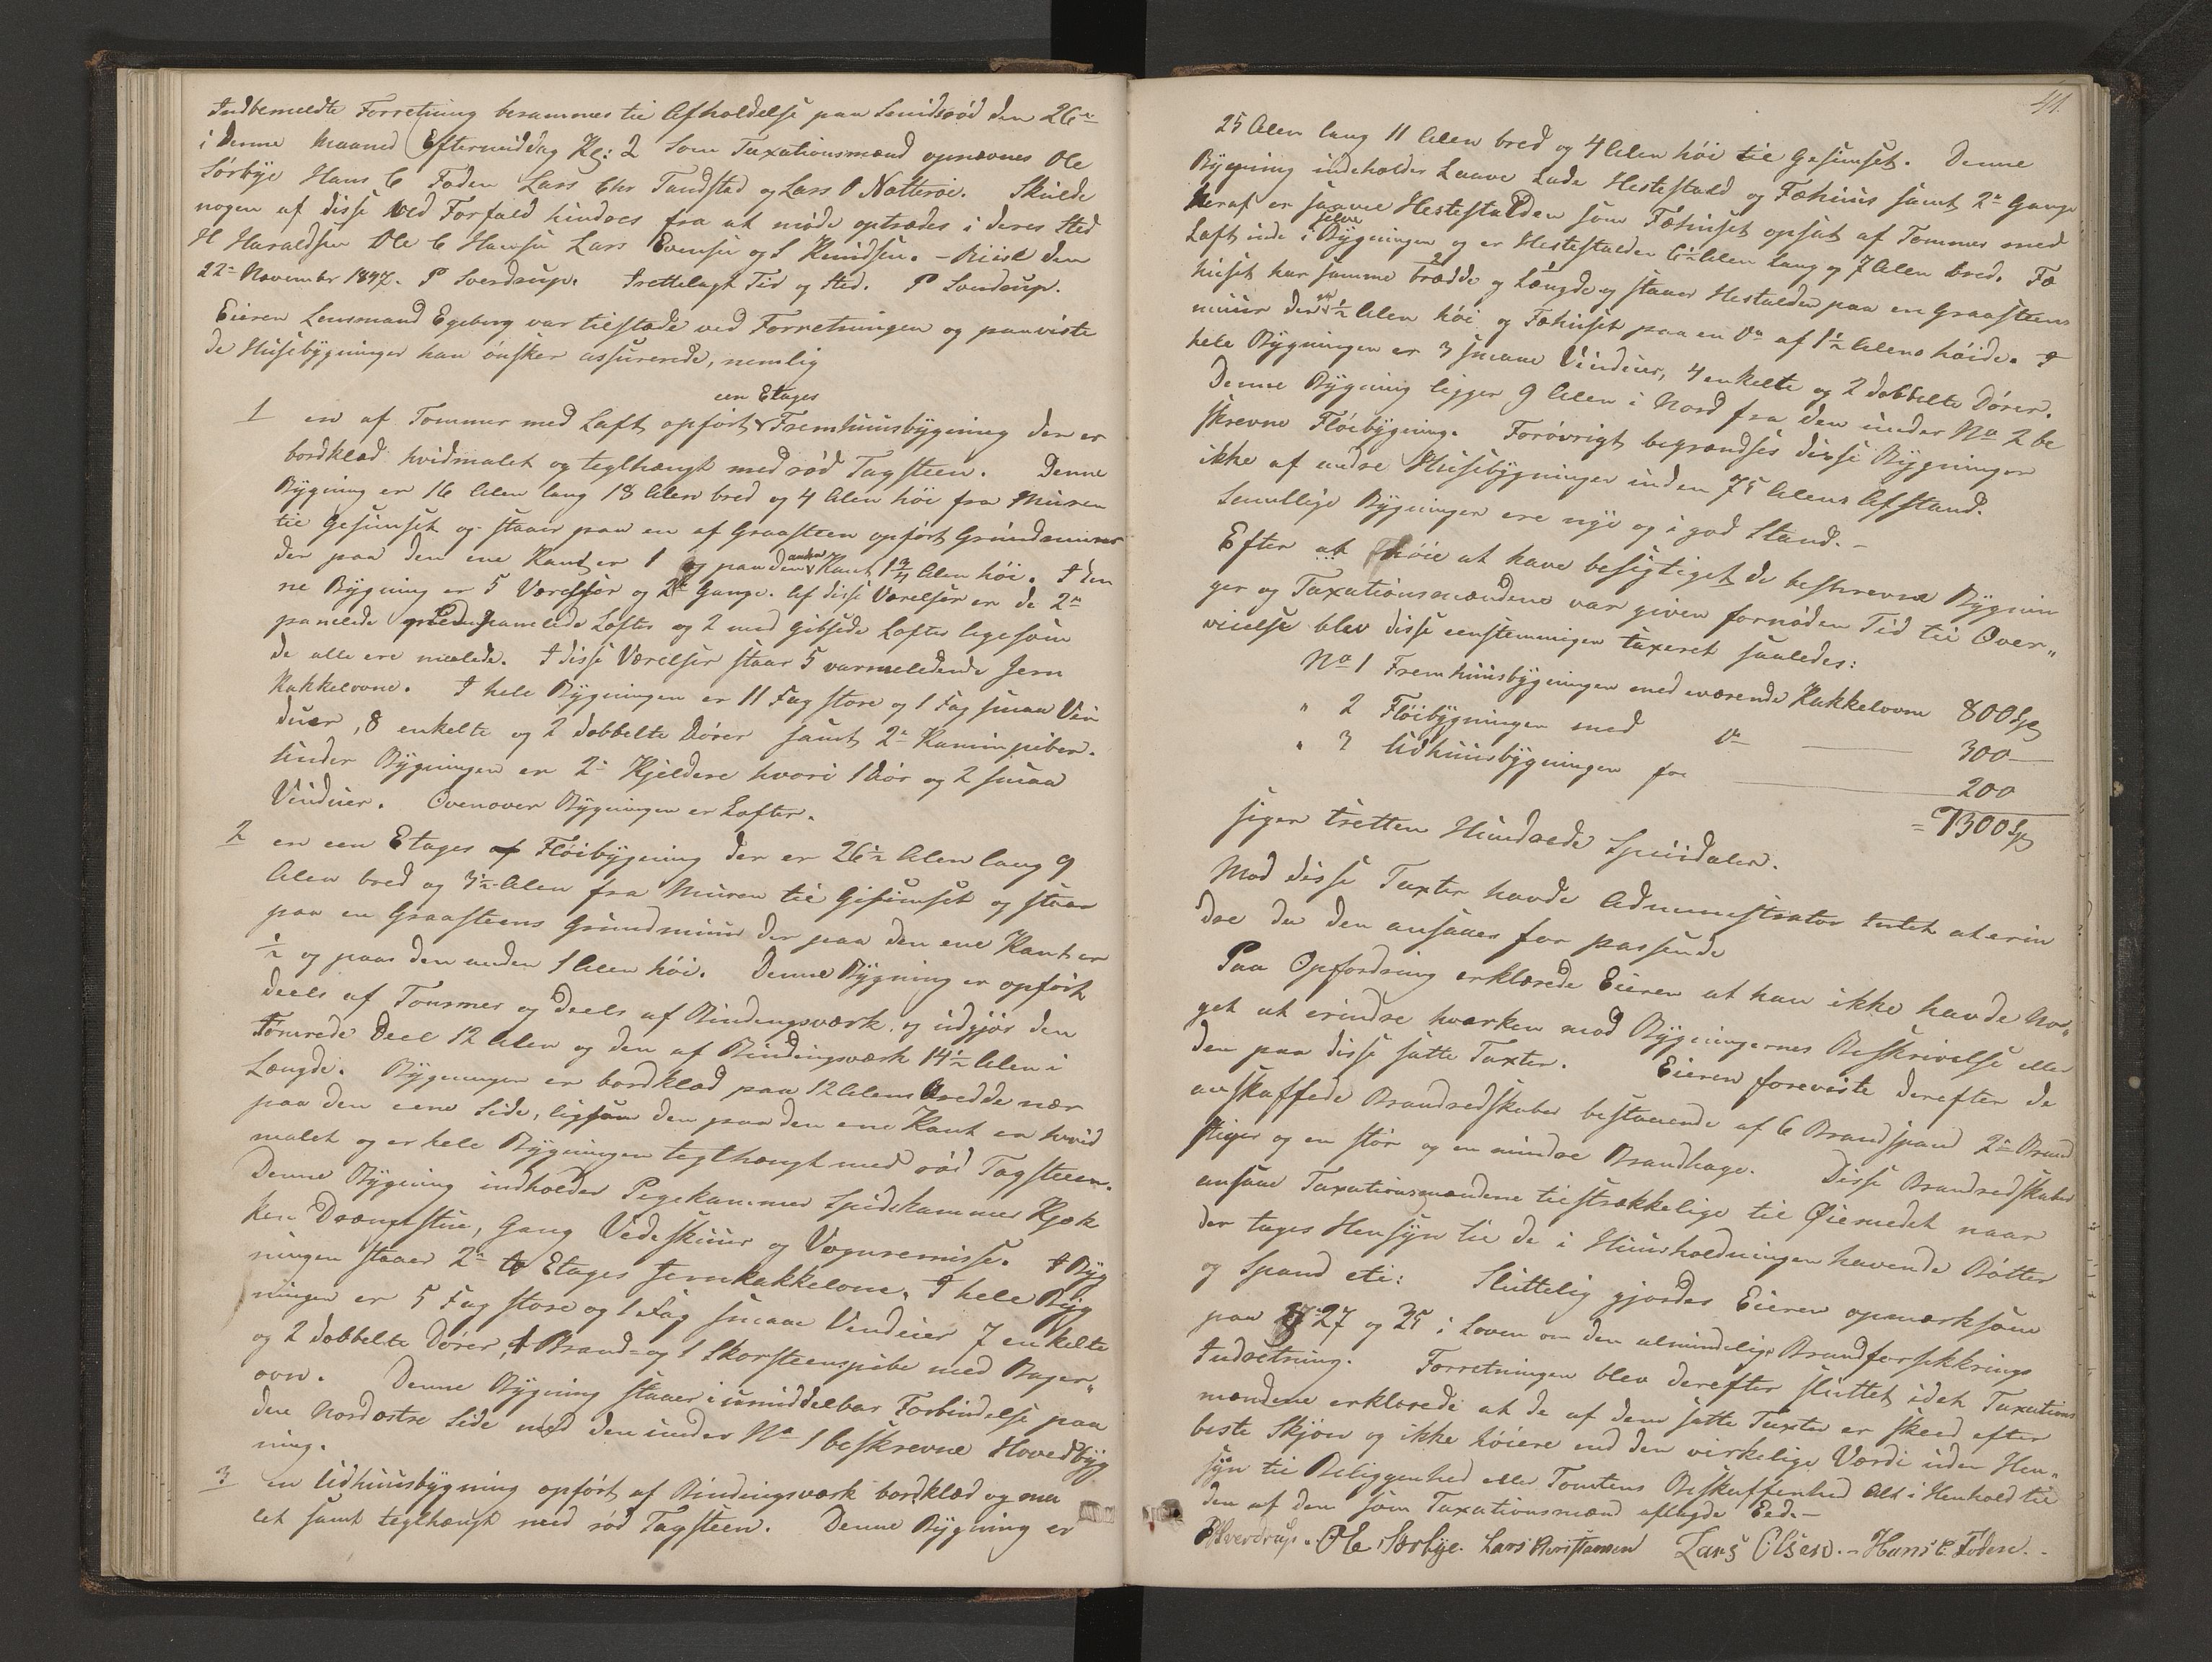 Indbemeldte Forretning berammes til Afholdelse paa Smidsrød den 26de
i denne Maaned Eftermiddag Kl: 2 Som Taxationsmænd opnævnes Ole
Sørbye Hans C Foden Lars Chr Tandsted og Lars O Nøtterøe. Skulde
nogen af disse ved Forfald hindres fra at møde optrædes i deres Sted
H Haraldsen Ole C Hansen Lars Evensen og S Knudsen. - Riise den
22de November 1847. P Sverdrup. Frettelagt Tid og Sted. P Sverdrup.
Eieren Lensmand Egeberg var tilstæde ved Forretningen og paaviste
de Huusebygninger han ønsker assurerede, nemlig
een Etages
1 en af Tømmer med Laft opført Fremhuusbygning der er
bordklæd hvidmalet og teglhængt med rød Tagsteen. Denne
Bygning er 16 Alen lang 18 Alen bred og 4 Alen høi fra Muren
til Gesimset og staaer paa en af Graasteen opført Grundmuur
der paa den ene Kant er 1 og paa den anden Kant 1 3/4 Alen høi. I den
ne Bygning er 5 Værelser og 2de Gange. Af disse Værelser er de 2de
panelede med panelede Lofter og 2 med gibsede Lofter ligesom
de alle ere malede. I disse Værelser staar 5 varmeledende Jern
Kakkelovne. I hele Bygningen er 11 Fag store og 1 Fag smaa Vin
duer, 8 enkelte og 2 dobbelte Dører samt 2de Kaminpiber.
Under Bygningen er 2de Kjeldere hvori 1 Dør og 2 smaa
Vinduer. Ovenover Bygningen er Lofter.
2 en een Etages Fløibygning der er 26½ Alen lang 9
Alen bred og 3½ Alen fra Muren til Gesimset og staar
paa en Graasteens Grundmuur der paa den ene Kant er
½ og paa den anden 1 Alen høi. Denne Bygning er opført
deels af Tømmer og deels af Bindingsværk og udgjør den
Tømrede Deel 12 Alen og den af Bindingsværk 14½ Alen i
Længde. Bygningen er bordklæd paa 12 Alens Bredde nær
paa den eene Side, ligsom den paa den ene Kant er hvid
malet og er hele Bygningen teglhængt med rød Tagsteen.
Denne Bygning indholder Pigekammer Spiskammer Kjøk
ken Drængestue, Gang Vedeskuur og Vognremisse. I Byg
ningen staaer 2de Etages Jernkakkelovne. I hele Byg
ningen er 5 Fag store og 1 Fag smaae Vinduer 7 enkelte
og 2 dobbelte Dører, 1 Brand- og 1 Skorsteenspibe med Bager„
ovn. Denne Bygning staaer i umiddelbar Forbindelse paa
den nordøstre Side med den under No 1 beskrevne Hovedbyg
ning.
3 en Udhuusbygning opført af Bindingsværk bordklæd og ma
let samt teglhængt med rød Tagsteen. Denne Bygning er
41.
25 Alen lang 11 Alen bred og 4 Alen høi til Gesimset. Denne
Bygning indeholder Laave Lade Hestestald og Fæhuus samt 2de Gange
heraf er saavel Hestestalden som Fæhuset opsat af Tømmer med
Laft inde i selve Bygningen og er Hestestalden 6½ Alen lang og 7 Alen bred. Fæ
huset har samme brædde og Længde og staaer Hestalden paa en Graasteens
muur der er ½ Alen høi og Fæhuset paa en do af 1½ Alens høide. I
hele Bygningen er 3 smaae Vinduer, 4 enkelte og 2 dobbelte Dører.
Denne Bygning ligger 9 Alen i Nord fra den under No 2 be
skrevne Fløibygning. Forøvrigt begrændses disse Bygninger
ikke af andre Huusebygninger inden 75 Alens Afstand.
Samtlige Bygninger ere nye og i god Stand. -
Efter at have besigtiget de beskrevne Bygnin
ger og Taxationsmændene var given fornøden Tid til Over„
veielse blev disse eenstemmigen taxeret saaledes:
No 1 Fremhuusbygningen med værende Kakkelovne 800 Spd
" 2 Fløibygningen med do 300 —
" 3 Udhuusbygningen for 200
= 1300 Spd
siger tretten Hundrede Speciedaler.
Mod disse Taxter havde Administrator Intet at erin
dre da den ansaaes for passende
Paa Opfordring erklærede Eieren at han ikke havde No„
get at erindre hverken mod Bygningernes Beskrivelse eller
den paa disse satte Taxter. Eieren foreviste derefter de
anskaffede Brandredskaber bestaaende af 6 Brandspand 2de Brand
stiger og en stør og en mindre Brandhage. Disse Brandredskaber
ansaae Taxationsmændene tilstrækkelige til Øiemedet naar
der tages Hensyn til de i Huusholdningen havende Bøtter
og Spand etc: Sluttelig gjordes Eieren opmærksom
paa § 27 og 35 i Loven om den almindelige Brandforsikkrings
Indretning. Forretningen blev derefter sluttet idet Taxations
mændene erklærede at de af dem satte Taxter er skeed efter
beste Skjøn og ikke høiere end den virkelige Værdi uden Hen„
syn til Beliggenhed eller Tomtens Beskaffenhed Alt i Henhold til
den af dem som Taxationsmænd aflagde Eed. -
PSverdrup. Ole Sørbye. Lars Christiansen Lars Olsen. - Hans C. Foden. -